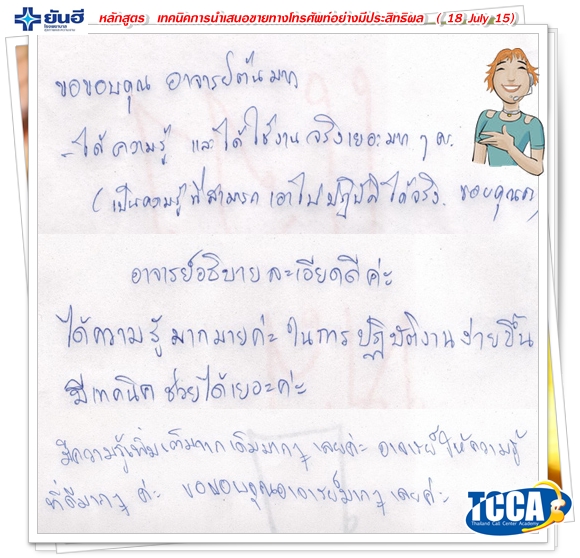 ยันฮี
โรงพยาบาล
หลักสูตร เทคนิคการนำเสนอขายทางโทรศัพท์อย่างมีประสิทธิผล ( 18 July 15)
ขอขอบคุณ อาจารย์ต้นมาก
- ได้ความรู้ และได้ใช้งานจริงเยอะมาก ๆ ค่ะ
(เป็นความรู้ที่สามารถเอาไปปฏิบัติได้จริง. ขอบคุณค่ะ)
อาจารย์อธิบายละเอียดดีค่ะ
ได้ความรู้มากมายค่ะ ในการปฏิบัติงานง่ายขึ้น
มีเทคนิคช่วยได้เยอะค่ะ
มีความรู้เพิ่มเติมจากเดิมมากๆ เลยค่ะ อาจารย์ให้ความรู้
ที่ดีมากๆ ค่ะ ขอขอบคุณอาจารย์มากๆ เลยค่ะ
TCCA
Thailand Call Center Academy